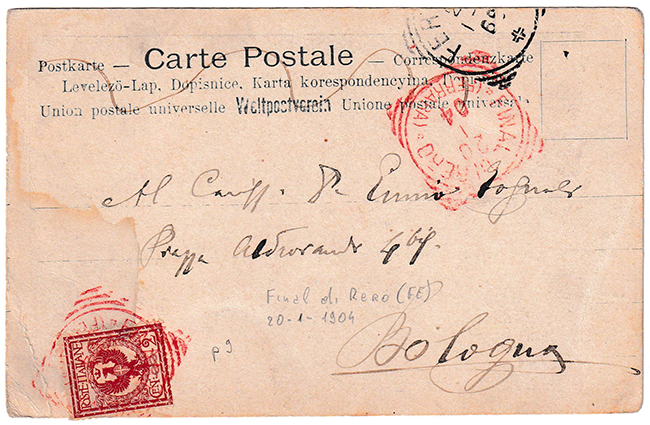 Postkarte — Carte Postale — Correspondenzkarte
Levelező-Lap, Dopisnice, Karta korespondencyjna,
Union postale universelle Weltpostverein Unione postale universale
FINAL DI RERO (FERRARA)
20 1 04
Al Cariss.
Piazza Aldrovandi 4 bis
Final di Rero (FE)
20-1-1904
p 9
Bologna
POSTE ITALIANE
CENT. 2